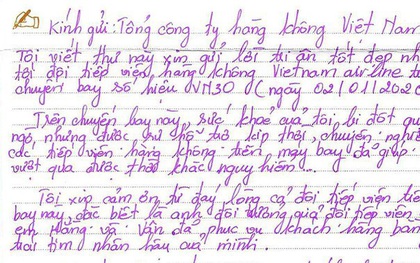 Kính gửi: Tổng công ty hàng không Việt Nam
Tôi viết thư này xin gửi lời tri ân tốt đẹp
tới đội tiếp viên hàng không Vietnam airline
chuyến bay số hiệu VN30 (ngày 02/01/2020
Trên chuyến bay này, sức khoẻ của tôi bị đột
ngộ, nhưng được sự hỗ trợ kịp thời, chuyên
các tiếp viên hàng không trên máy bay đã giúp
vượt qua được thời khắc nguy hiểm...
Tôi xin cảm ơn từ đáy lòng cả đội tiếp viên
bay này, đặc biệt là anh đội trưởng của đội tiếp viên
em Hằng và Vân đã phục vụ khách hàng bằng
trái tim nhân hậu của mình.